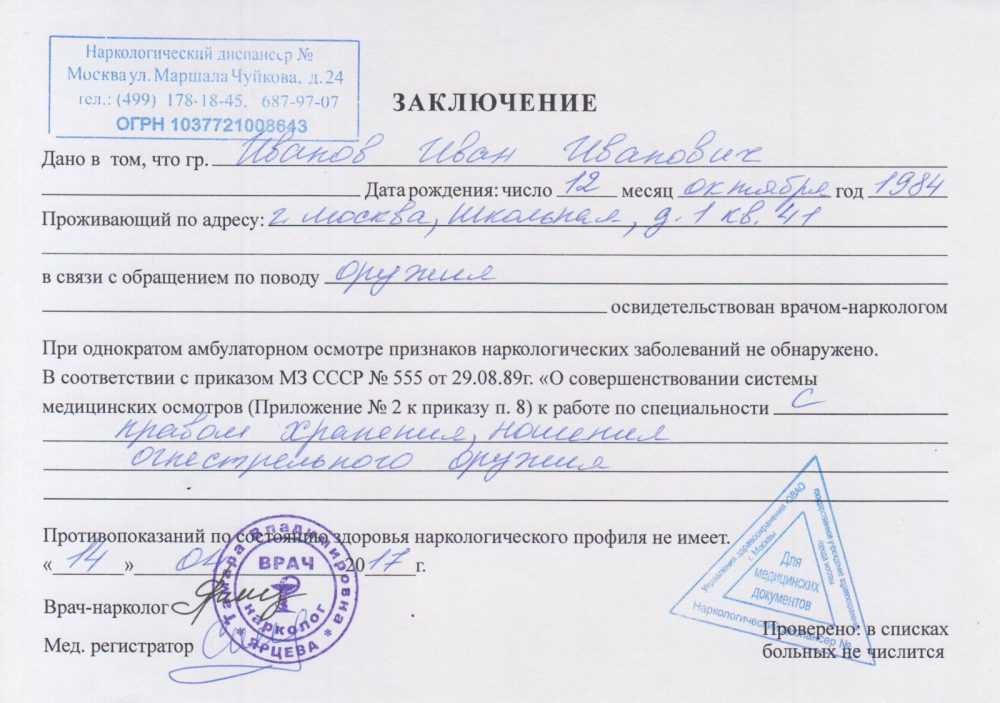 Наркологический диспансер №
Москва ул. Маршала Чуйкова, д. 24
тел.: (499) 178-18-45, 687-97-07
ОГРН 1037721008643
ЗАКЛЮЧЕНИЕ
Дано в том, что гр. Иванов Иван Иванович
Дата рождения: число 12 месяц октября год 1984
Проживающий по адресу: г. Москва, Школьная, д. 1 кв. 41
в связи с обращением по поводу оружия
освидетельствован врачом-наркологом
При однократом амбулаторном осмотре признаков наркологических заболеваний не обнаружено.
В соответствии с приказом МЗ СССР № 555 от 29.08.89г. «О совершенствовании системы
медицинских осмотров (Приложение № 2 к приказу п. 8) к работе по специальности с
правом хранения, ношения
огнестрельного оружия
Противопоказаний по состоянию здоровья наркологического профиля не имеет.
«14» 2017 г.
Врач-нарколог
Мед. регистратор
Тамара Владимировна
* ЯРЦЕВА *
ВРАЧ
нарколог
Управления здравоохранения ЮВАО
г. Москвы
Наркологический диспансер №
Для
медицинских
документов
Проверено: в списках
больных не числится